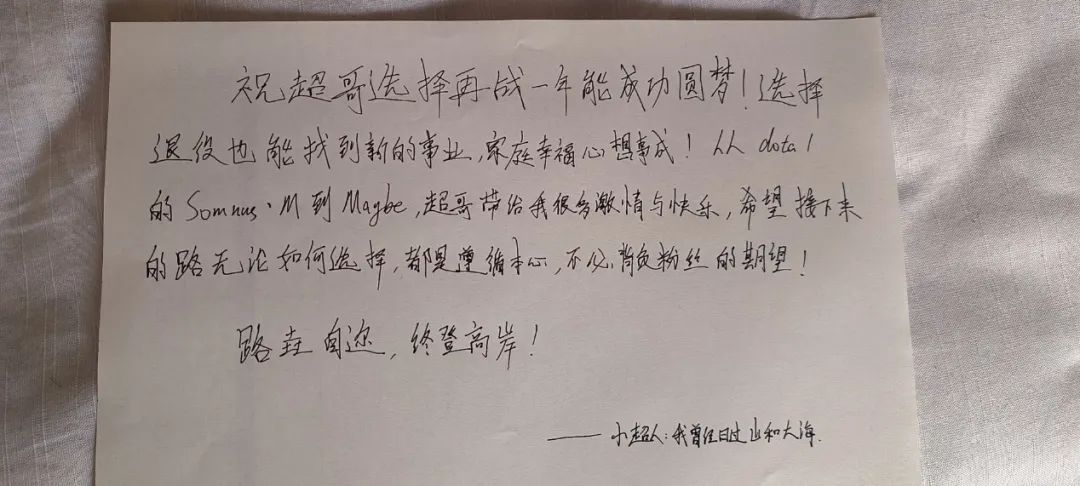 祝超哥选择再战一年能成功圆梦！选择
退役也能找到新的事业，家庭幸福心想事成！从 dota1
的 Somnus·M 到 Maybe，超哥带给我很多激情与快乐，希望接下来
的路无论如何选择，都是遵循本心，不必背负粉丝的期望！
路 自迩，终登高岸！
——小超人：我曾经日过山和大海.